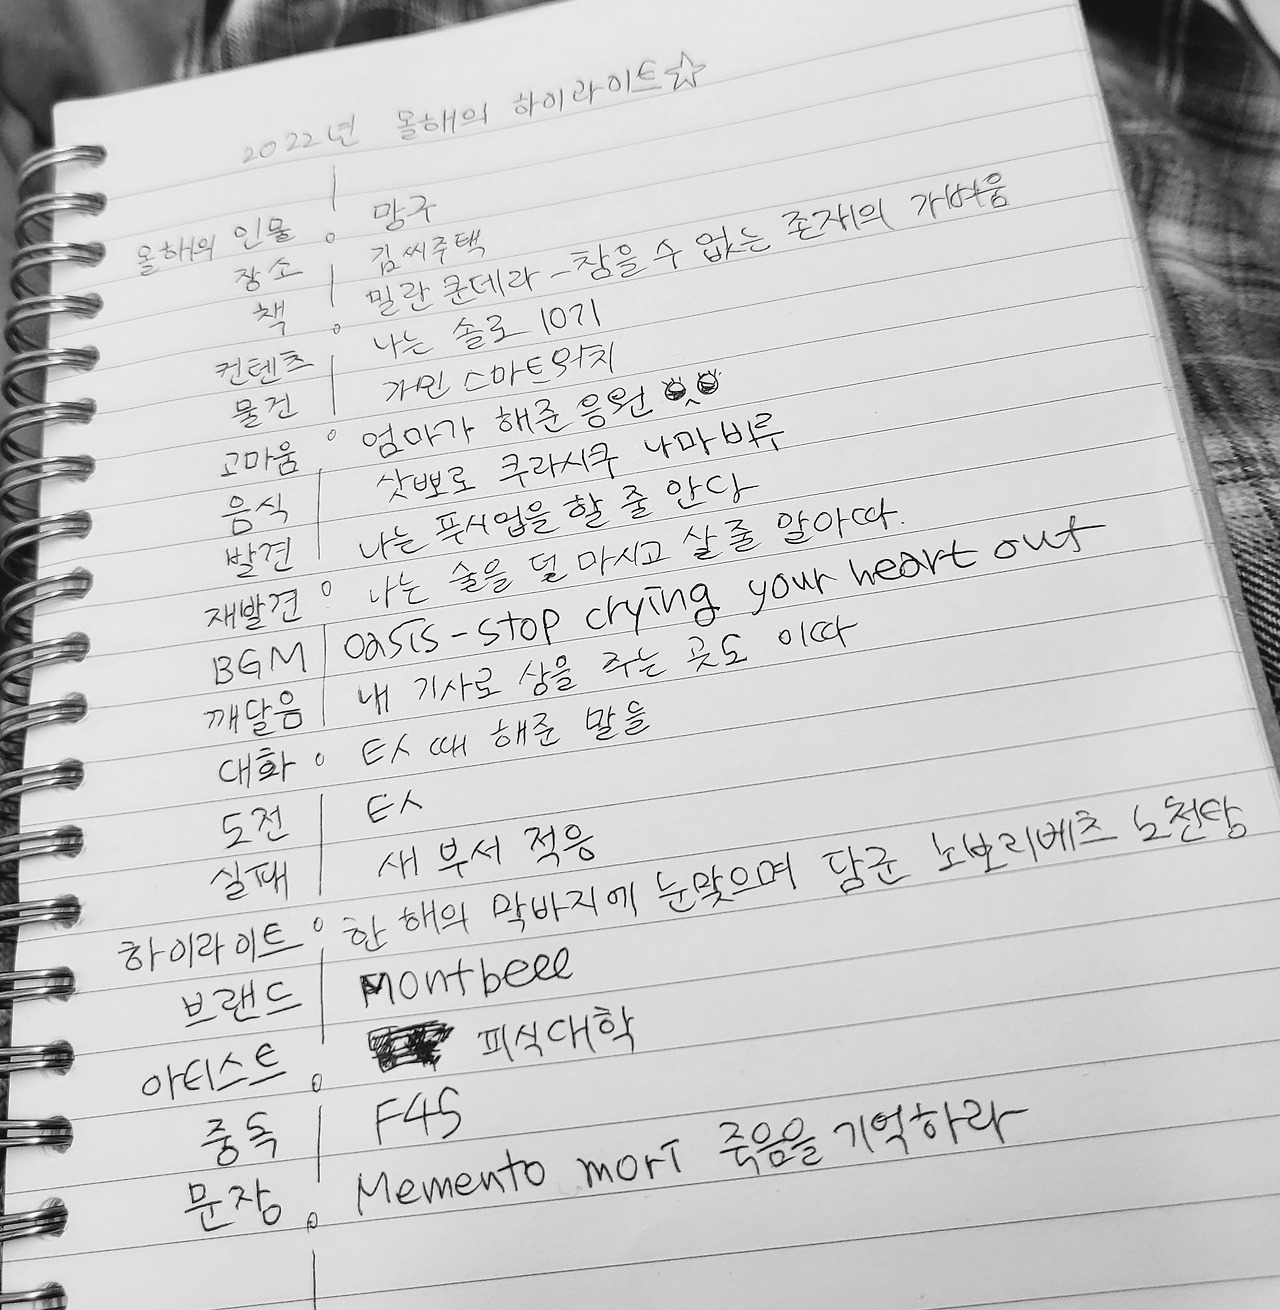 2022년 올해의 하이라이트☆
올해의 인물 망구
장소 김씨주택
책 밀란 쿤데라 - 참을 수 없는 존재의 가벼움
컨텐츠 나는 솔로 10기
물건 가민 스마트와치
고마움 엄마가 해준 응원
음식 삿뽀로 쿠라시쿠 나마비루
발견 나는 푸시업을 할 줄 안다
재발견 나는 술을 덜 마시고 살 줄 알아따.
BGM oasis - stop crying your heart out
깨달음 내 기사로 상을 주는 곳도 이따
대화 EX 때 해준 말들
도전 EX
실패 새 부서 적응
하이라이트 한 해의 막바지에 눈맞으며 담군 노보리베츠 노천탕
브랜드 Montbell
아티스트 피식대학
중독 F45
문장 Memento mori 죽음을 기억하라